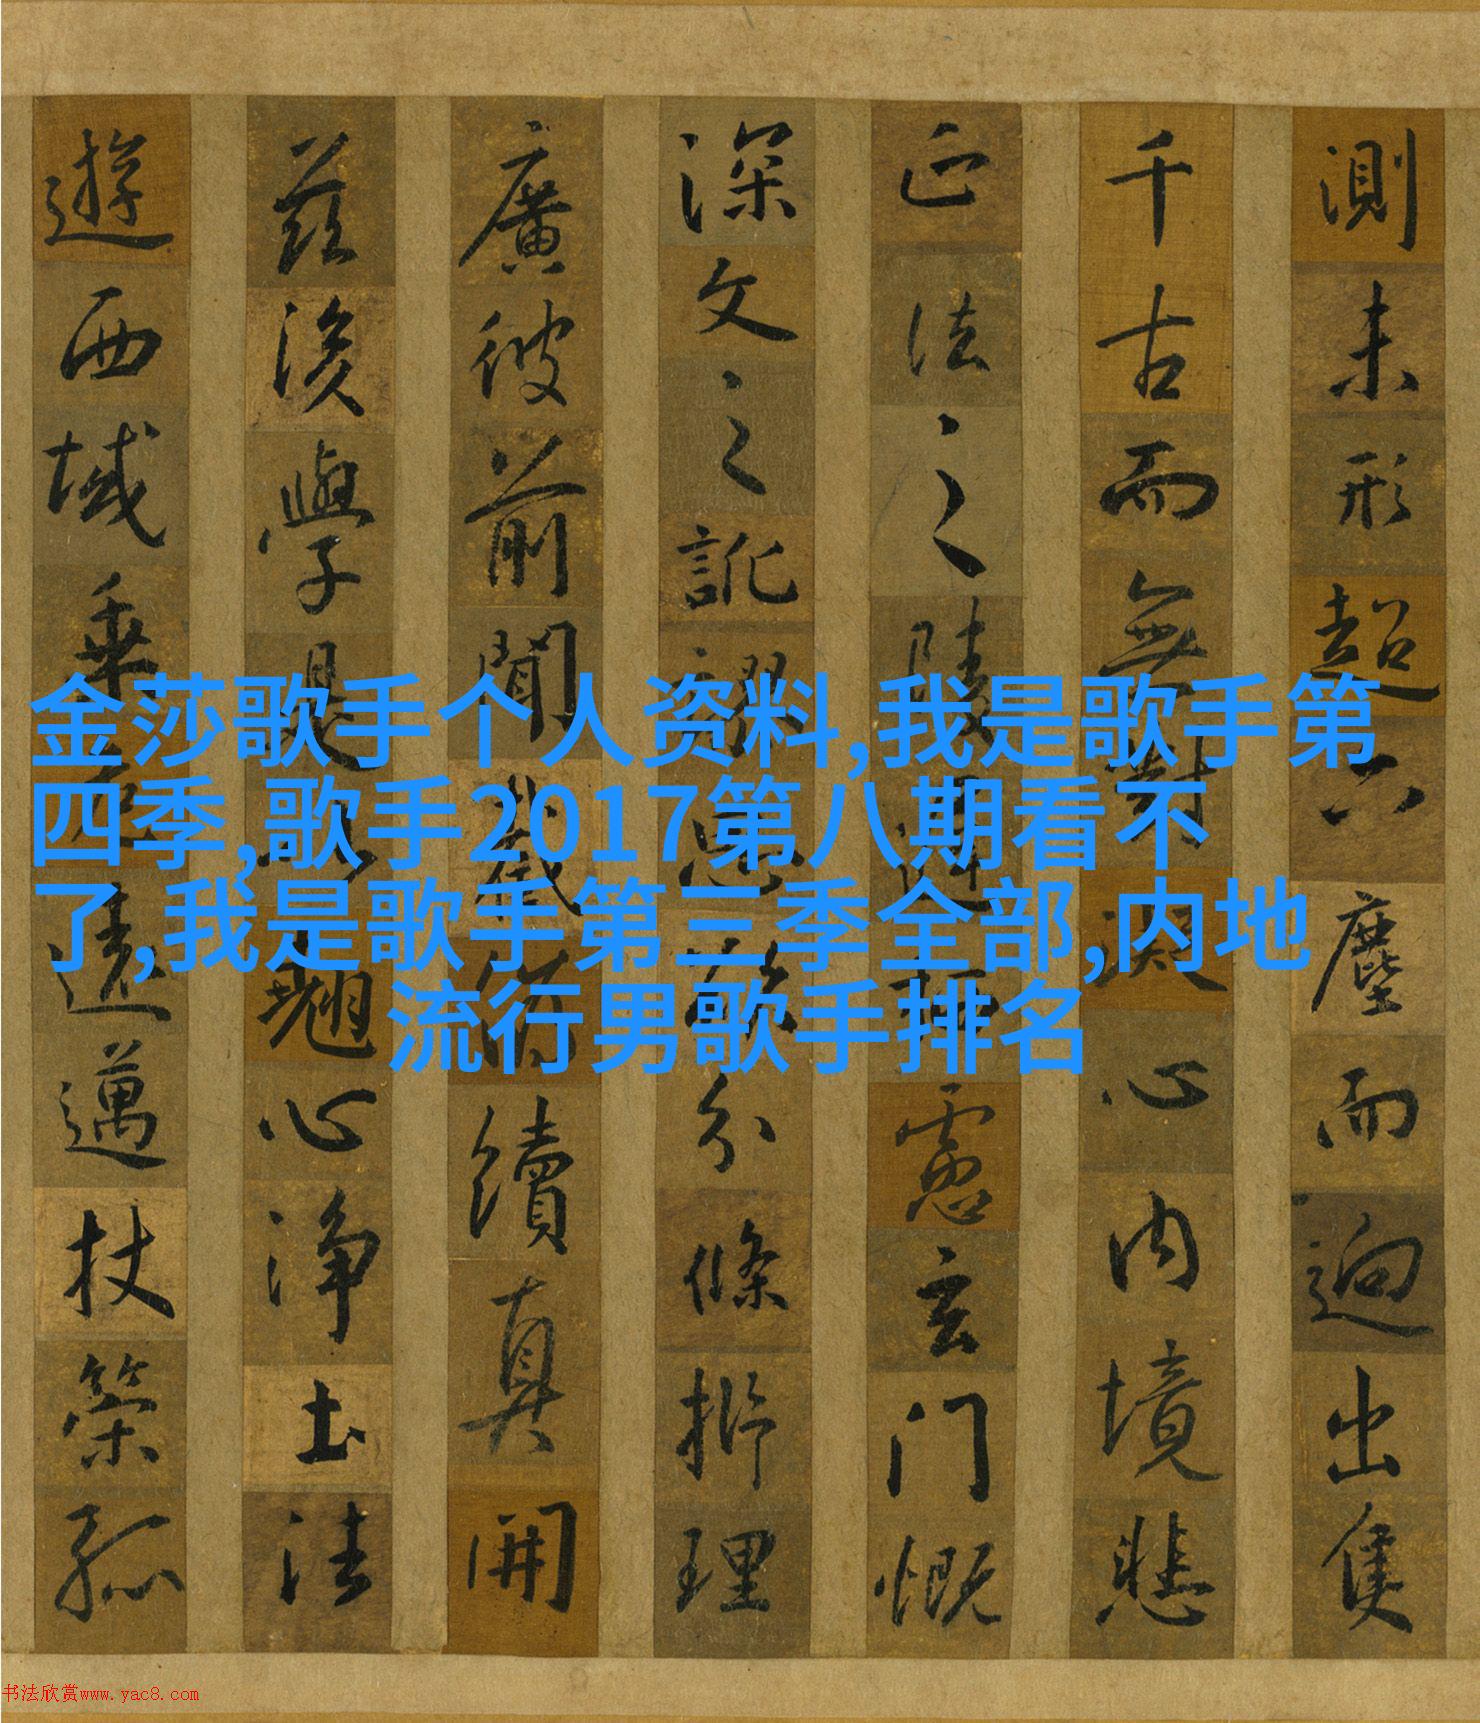 金莎歌手个人资料,我是歌手第
四季,歌手2017第八期看不
了,我是歌手第三季全部,内地
流行男歌手排名
測未形超六塵而迥出隻
千古而無對凝心內境悲
正法之陵遲栖慮玄門慨
深文之訛謬思欲分條析理
廣彼前聞截偽續真開
茲後學是以翹心淨土法
遊西域乘危遠邁杖策孤
书法欣赏www.yac8.com